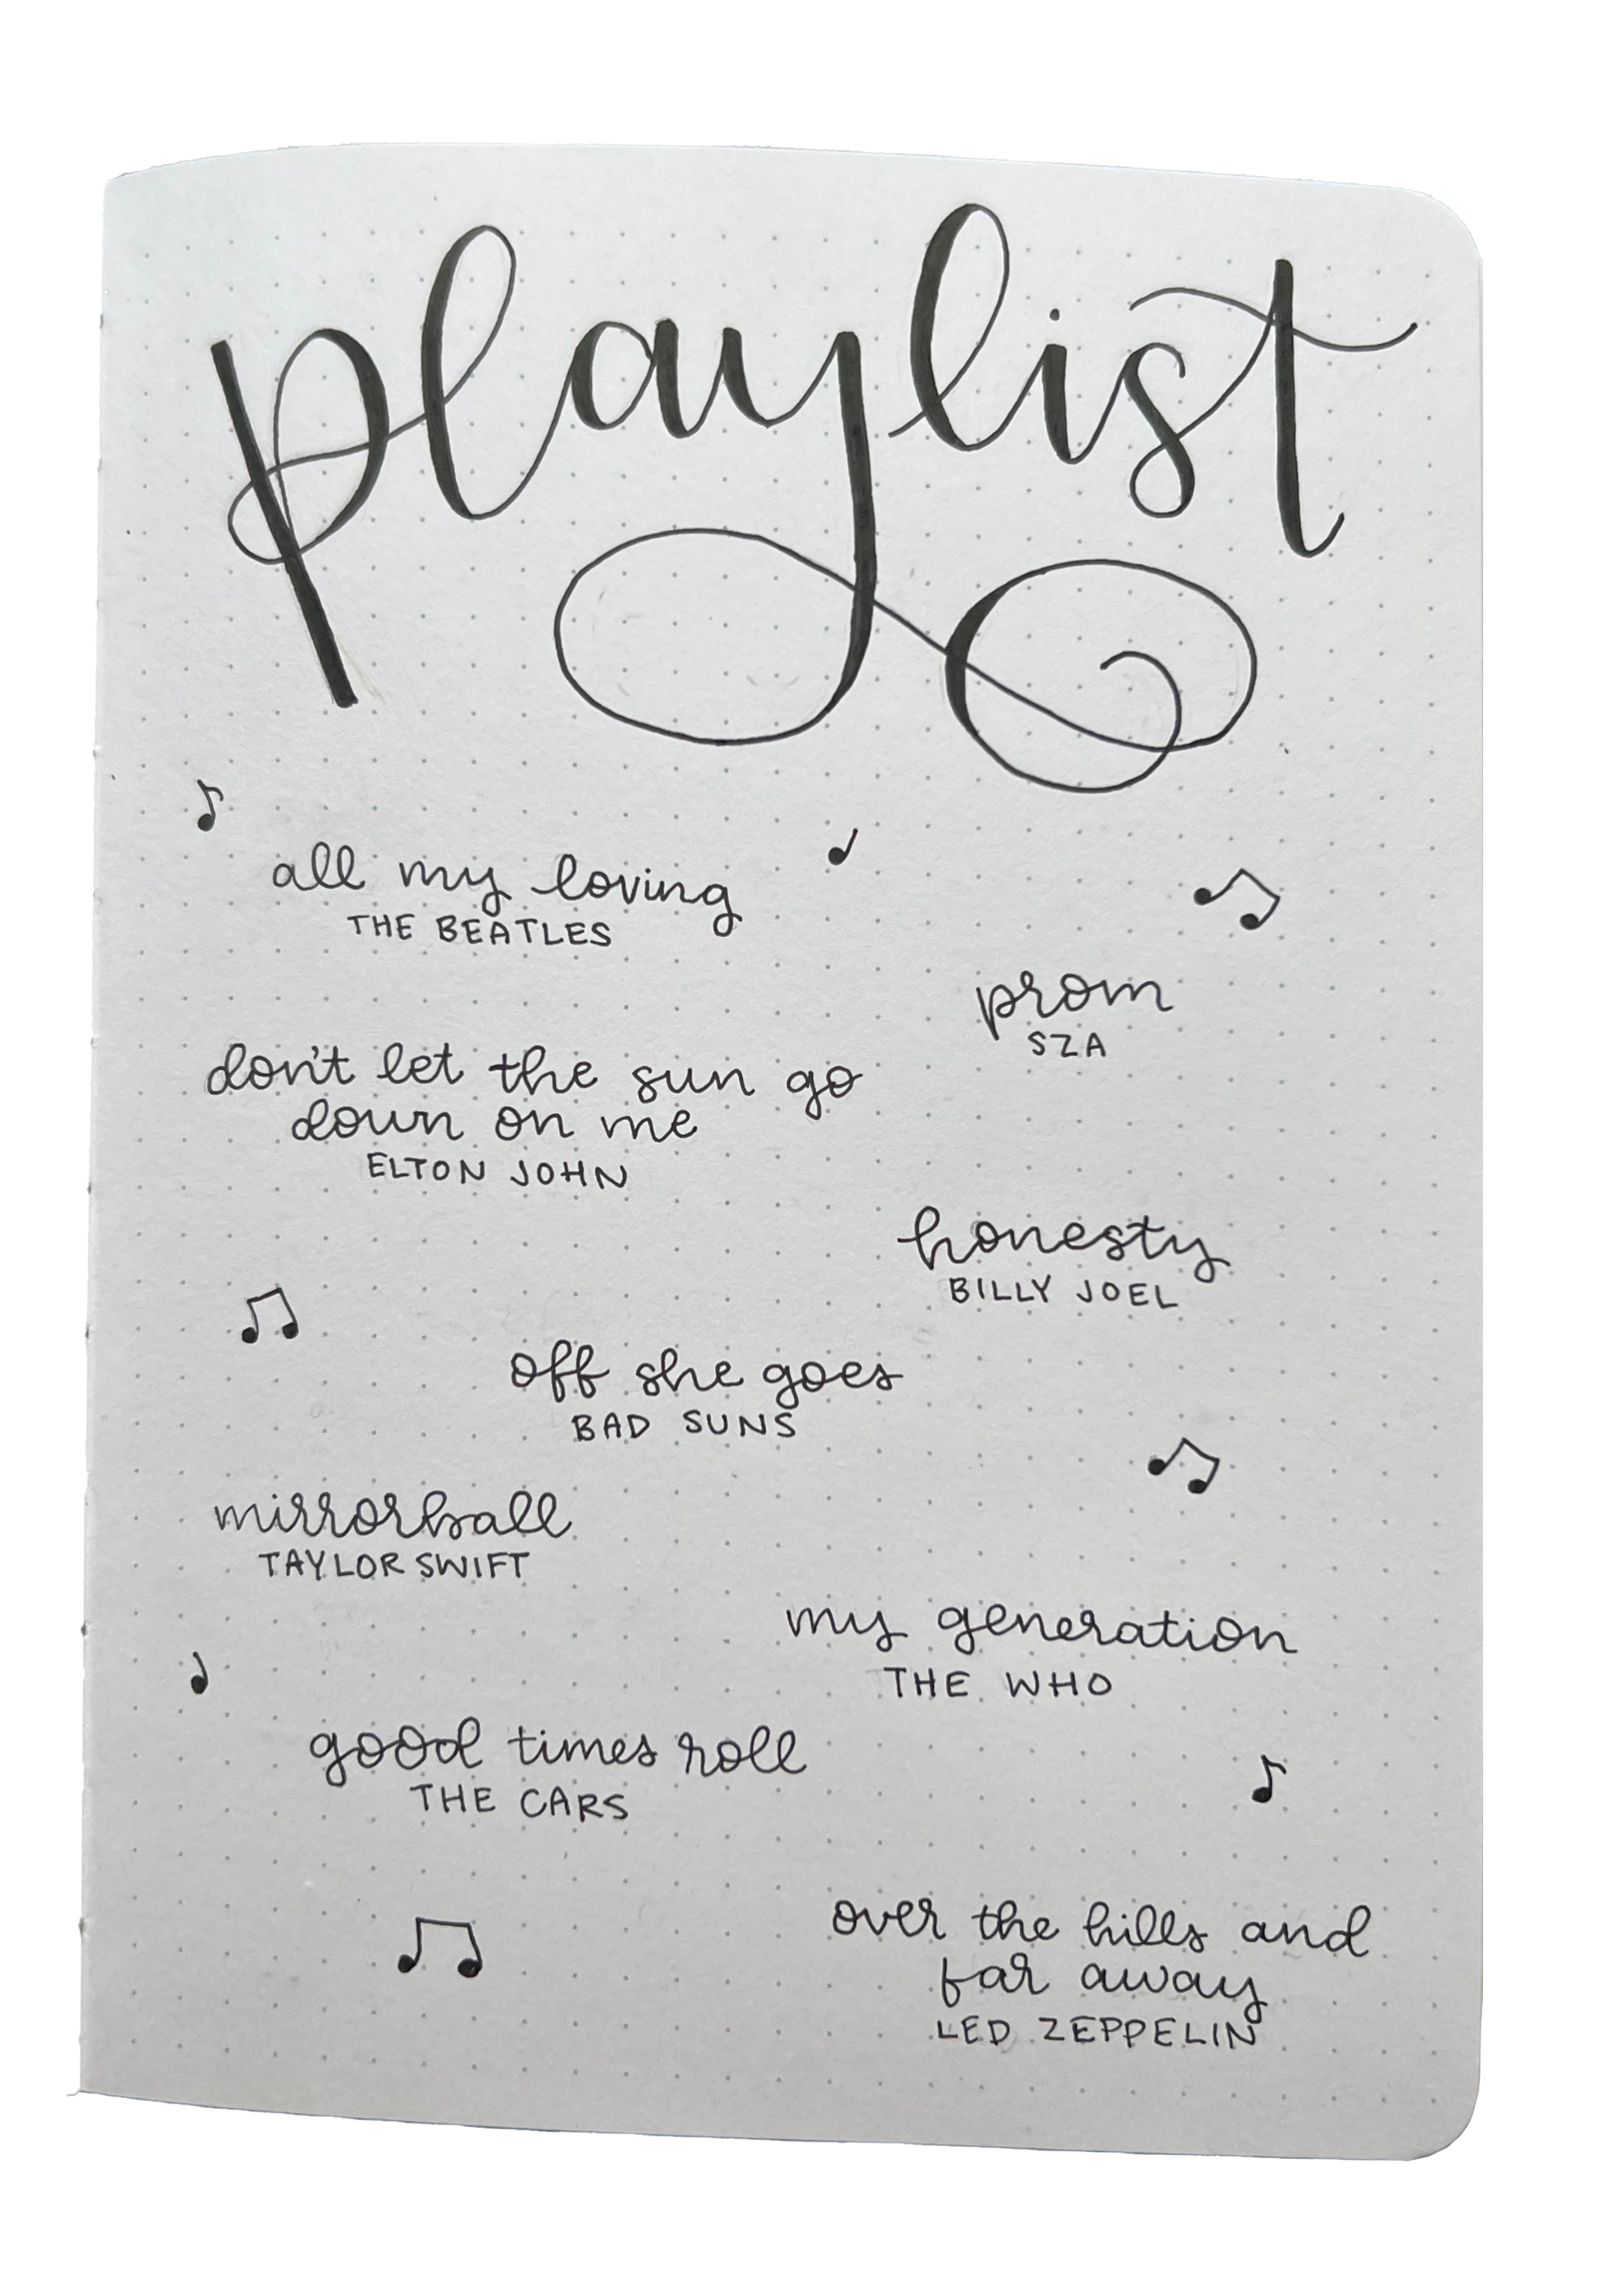 playlist
all my loving
THE BEATLES
prom
SZA
don't let the sun go
down on me
ELTON JOHN
honesty
BILLY JOEL
off she goes
BAD SUNS
mirrorball
TAYLOR SWIFT
my generation
THE WHO
good times roll
THE CARS
over the hills and
far away
LED ZEPPELIN